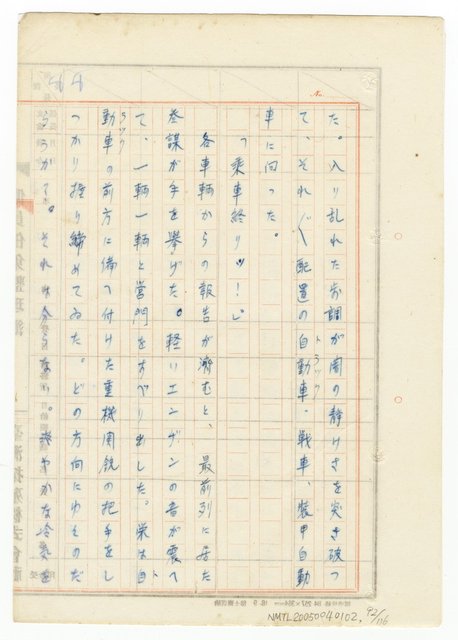 No.
た。入り乱れた歩調が闇の静けさを突き破つ
て、それ〴〵配置の自動車、戦車、装甲自動
トラツク
車に向つた。
「乗車終りツ！」
各車輌からの報告が済むと、最前列に居た
参謀が手を挙げた。軽いエンヂンの音が震へ
て、一輌一輌と営門をすべり出した。栄は自
動車の前方に備へ付けた重機関銃の把手をし
トラツク
つかり握り締めてゐた。どの方向にゆくのだ
らうか？。それは分らない。爽やかな冷気を
NMTL20050040102
92/116